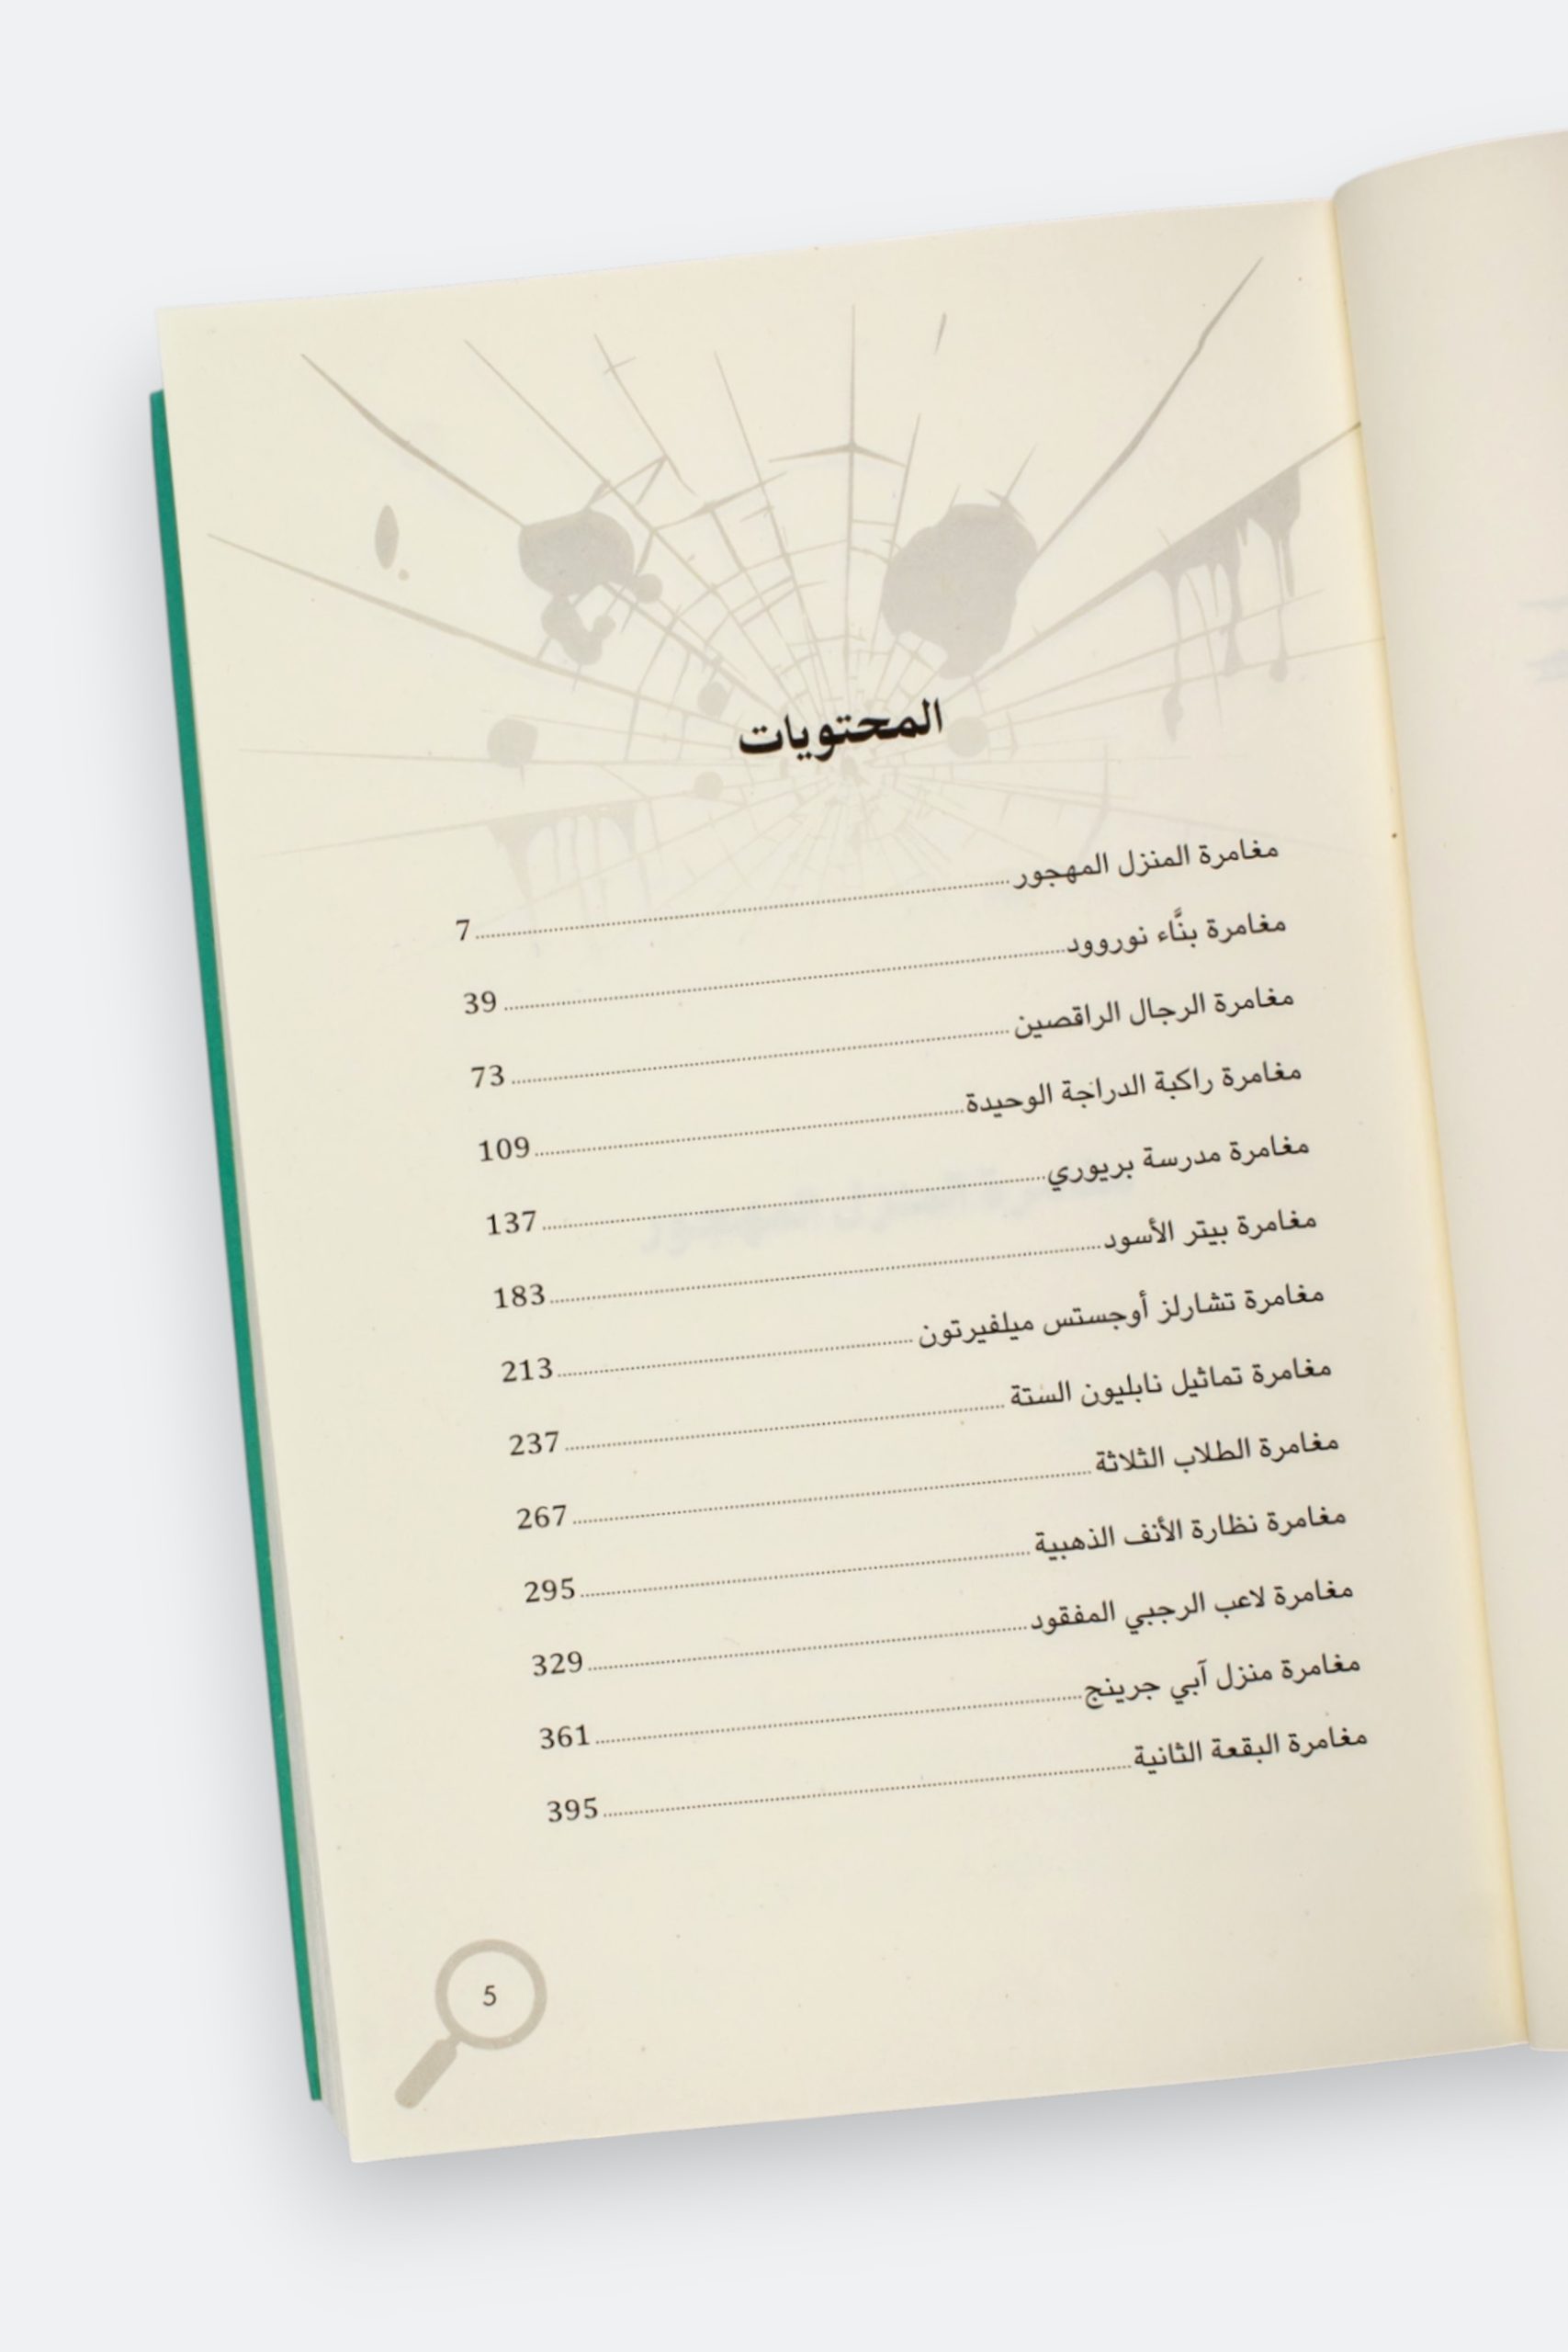 المحتويات
مغامرة المنزل المهجور 7
مغامرة بنَّاء نوروود 39
مغامرة الرجال الراقصين 73
مغامرة راكبة الدراجة الوحيدة 109
مغامرة مدرسة بريوري 137
مغامرة بيتر الأسود 183
مغامرة تشارلز أوجستس ميلفيرتون 213
مغامرة تماثيل نابليون الستة 237
مغامرة الطلاب الثلاثة 267
مغامرة نظارة الأنف الذهبية 295
مغامرة لاعب الرجبي المفقود 329
مغامرة منزل آبي جرينج 361
مغامرة البقعة الثانية 395
5